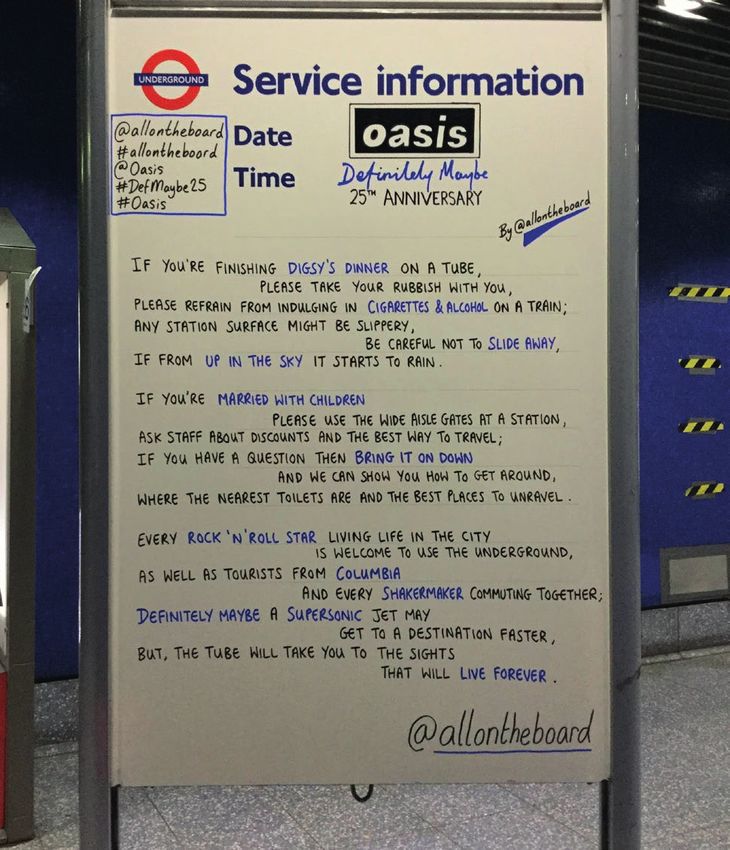 UNDERGROUND
Service information
@allontheboard
#allontheboard
@Oasis
#DefMaybe25
#Oasis
Date
oasis
Time
Definitely Maybe
25TH ANNIVERSARY
By @allontheboard
IF YOU'RE FINISHING DIGSY'S DINNER ON A TUBE,
PLEASE TAKE YOUR RUBBISH WITH YOU,
PLEASE REFRAIN FROM INDULGING IN CIGARETTES & ALCOHOL ON A TRAIN;
ANY STATION SURFACE MIGHT BE SLIPPERY,
BE CAREFUL NOT TO SLIDE AWAY,
IF FROM UP IN THE SKY IT STARTS TO RAIN.
IF YOU'RE MARRIED WITH CHILDREN
PLEASE USE THE WIDE AISLE GATES AT A STATION,
ASK STAFF ABOUT DISCOUNTS AND THE BEST WAY TO TRAVEL;
IF YOU HAVE A QUESTION THEN BRING IT ON DOWN
AND WE CAN SHOW YOU HOW TO GET AROUND,
WHERE THE NEAREST TOILETS ARE AND THE BEST PLACES TO UNRAVEL.
EVERY ROCK 'N' ROLL STAR LIVING LIFE IN THE CITY
IS WELCOME TO USE THE UNDERGROUND,
AS WELL AS TOURISTS FROM COLUMBIA
AND EVERY SHAKERMAKER COMMUTING TOGETHER;
DEFINITELY MAYBE A SUPERSONIC JET MAY
GET TO A DESTINATION FASTER,
BUT, THE TUBE WILL TAKE YOU TO THE SIGHTS
THAT WILL LIVE FOREVER.
@allontheboard